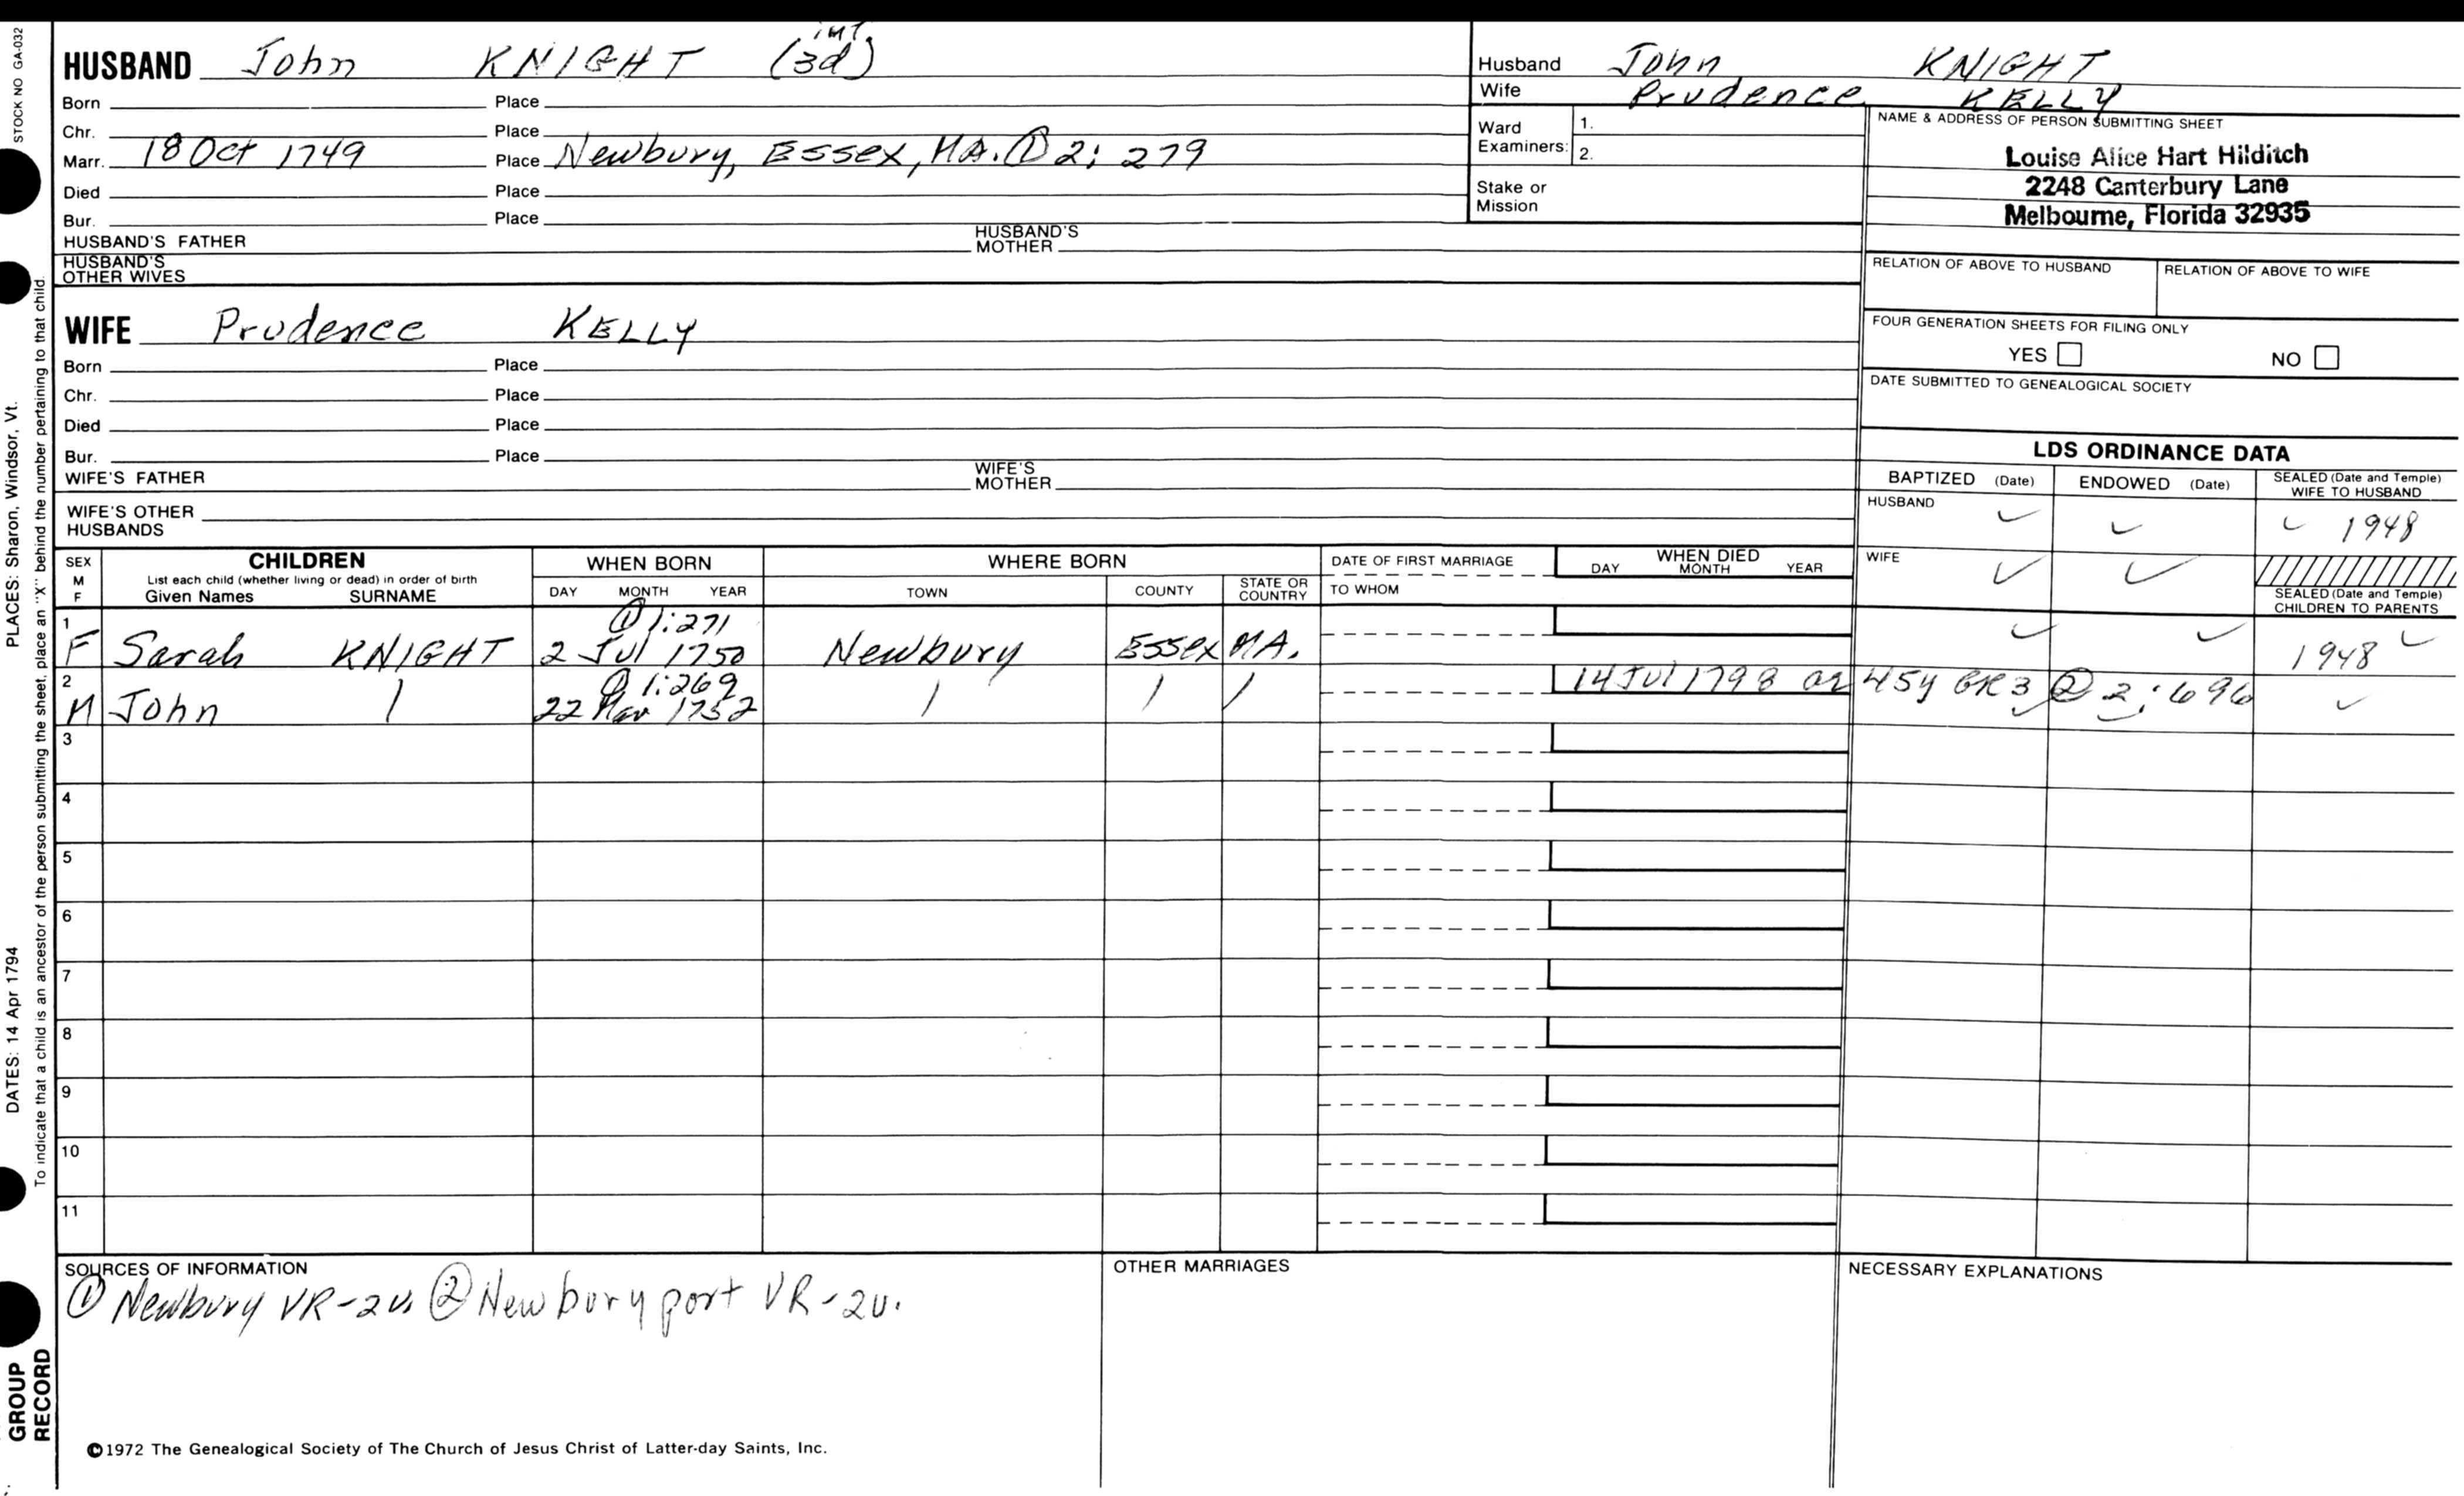 STOCK NO GA-032
PLACES: Sharon, Windsor, Vt.
DATES: 14 Apr 1794
To indicate that a child is an ancestor of the person submitting the sheet, place an "X" behind the number pertaining to that child.
GROUP
RECORD
int
HUSBAND John KNIGHT (3d)
Born Place
Chr. Place
Marr. 18 Oct 1749 Place Newbury, Essex, MA. ① 2: 279
Died Place
Bur. Place
HUSBAND'S FATHER HUSBAND'S MOTHER
HUSBAND'S OTHER WIVES
Husband John KNIGHT
Wife Prudence KELLY
Ward Examiners: 1.
2.
Stake or Mission
NAME & ADDRESS OF PERSON SUBMITTING SHEET
Louise Alice Hart Hilditch
2248 Canterbury Lane
Melbourne, Florida 32935
RELATION OF ABOVE TO HUSBAND RELATION OF ABOVE TO WIFE
FOUR GENERATION SHEETS FOR FILING ONLY
YES NO
DATE SUBMITTED TO GENEALOGICAL SOCIETY
WIFE Prudence KELLY
Born Place
Chr. Place
Died Place
Bur. Place
WIFE'S FATHER WIFE'S MOTHER
WIFE'S OTHER HUSBANDS
LDS ORDINANCE DATA
BAPTIZED (Date) ENDOWED (Date) SEALED (Date and Temple) WIFE TO HUSBAND
HUSBAND ✓ ✓ ✓ 1948
WIFE ✓ ✓
SEALED (Date and Temple) CHILDREN TO PARENTS
SEX M F
CHILDREN
List each child (whether living or dead) in order of birth
Given Names SURNAME
WHEN BORN
DAY MONTH YEAR
WHERE BORN
TOWN COUNTY STATE OR COUNTRY
DATE OF FIRST MARRIAGE
TO WHOM
WHEN DIED
DAY MONTH YEAR
1 ① 1:271
F Sarah KNIGHT 2 Jul 1750 Newbury Essex MA. ✓ ✓ 1948 ✓
2 ① 1:269 14 Jul 1798 ae 45y GR3 ② 2:696
M John / 22 Mar 1752 / / / ✓ ✓ ✓
3
4
5
6
7
8
9
10
11
SOURCES OF INFORMATION
① Newbury VR-2v. ② Newburyport VR-2v.
OTHER MARRIAGES
NECESSARY EXPLANATIONS
©1972 The Genealogical Society of The Church of Jesus Christ of Latter-day Saints, Inc.